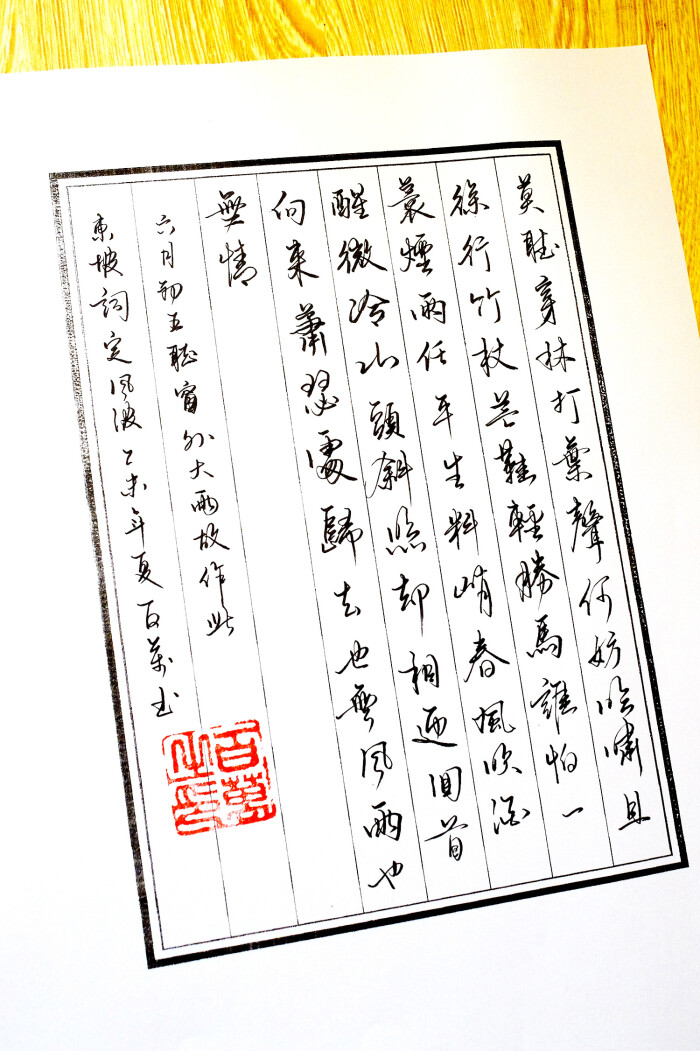 莫聽穿林打葉聲何妨吟嘯且
徐行竹杖芒鞋輕勝馬誰怕一
蓑煙雨任平生料峭春風吹酒
醒微冷山頭斜照却相迎回首
向來蕭瑟處歸去也無風雨也
無情
六月初五聽窗外大雨故作此
東坡詞定風波乙未年夏百萬書
百萬之印